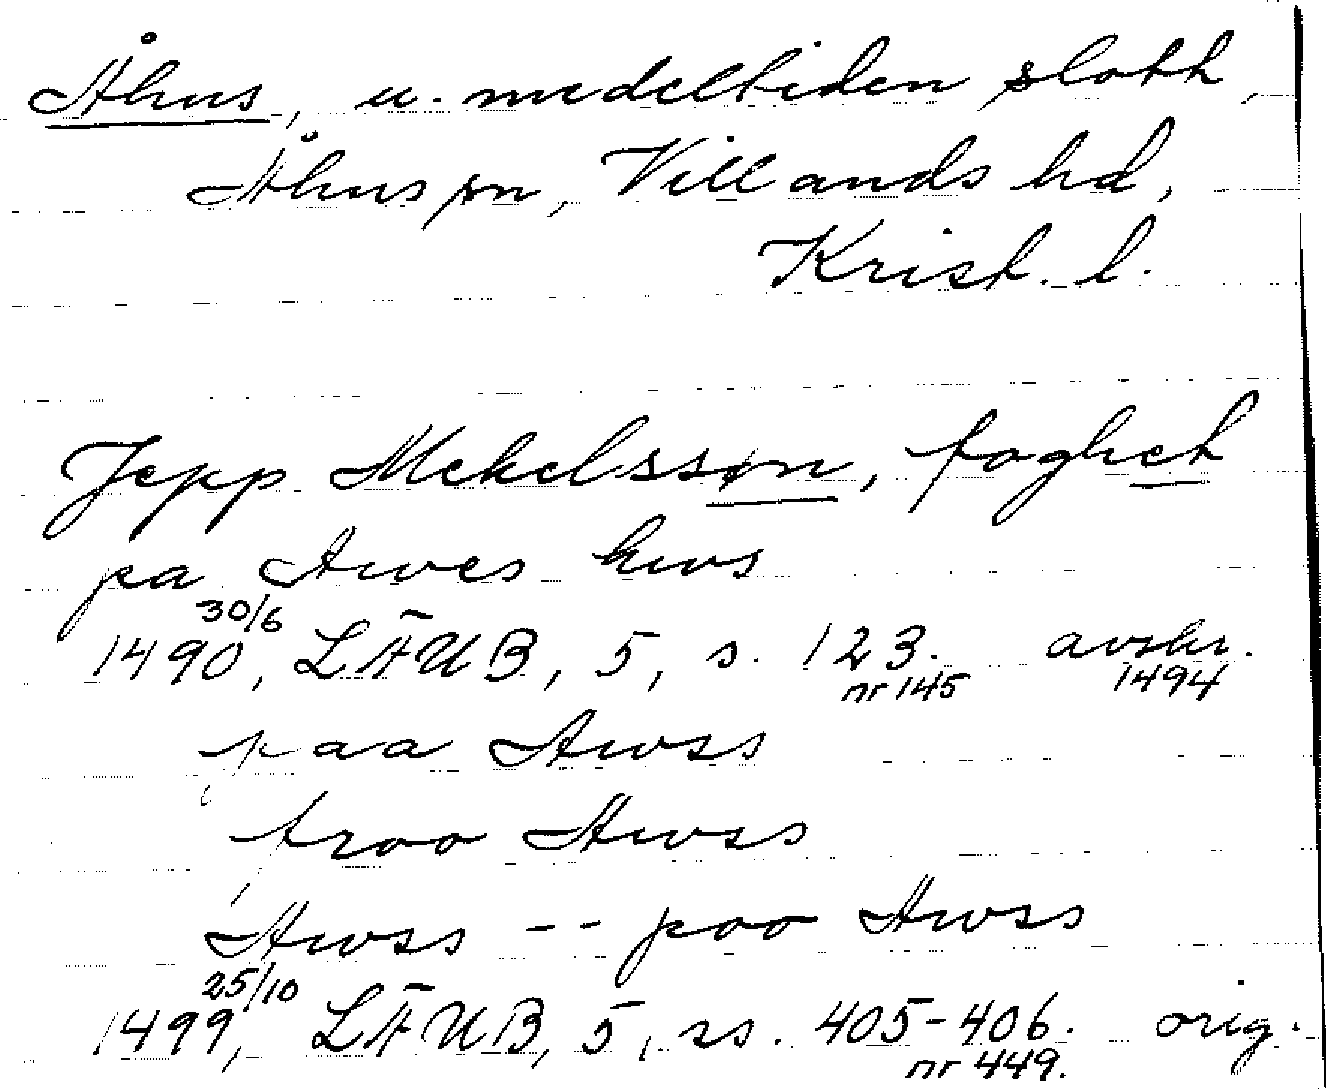 Åhus, u. medeltiden slott,
Åhus sn, Villands hd,
Krist. l.
Jepp Mekelssøn, foghet
pa Awes hws
30/6
1490, LÄUB, 5, s. 123. avskr.
nr 145 1494
paa Awss
froo Awss
Awss -- poo Awss
25/10
1499, LÄUB, 5, ss. 405-406. orig.
nr 449.